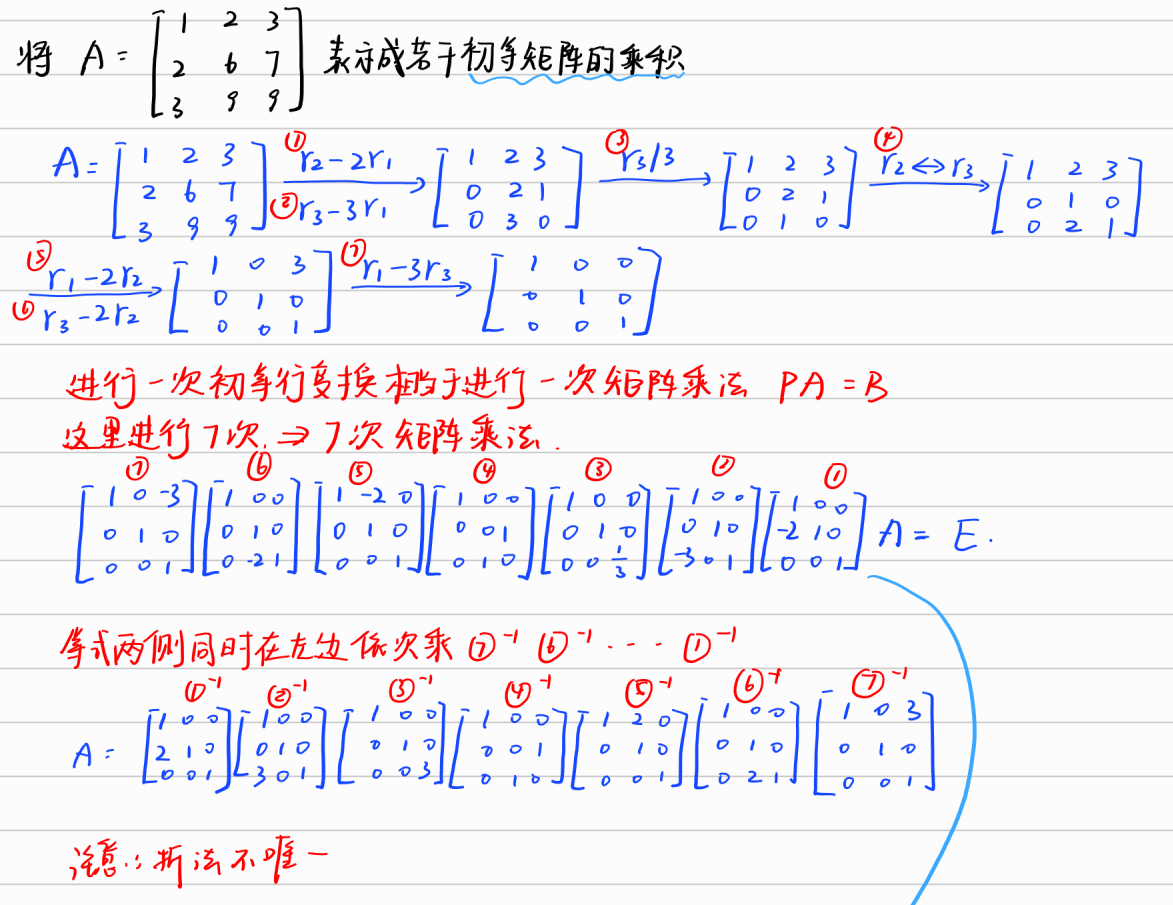 将 A = [1 2 3; 2 6 7; 3 9 9] 表示成若干初等矩阵的乘积
A = [1 2 3; 2 6 7; 3 9 9] ① r₂-2r₁ ② r₃-3r₁ → [1 2 3; 0 2 1; 0 3 0] ③ r₃/3 → [1 2 3; 0 2 1; 0 1 0] ④ r₂↔r₃ → [1 2 3; 0 1 0; 0 2 1]
⑤ r₁-2r₂ ⑥ r₃-2r₂ → [1 0 3; 0 1 0; 0 0 1] ⑦ r₁-3r₃ → [1 0 0; 0 1 0; 0 0 1]
进行一次初等行变换相当于进行一次矩阵乘法 PA = B
这里进行7次. ⇒ 7次矩阵乘法.
⑦ ⑥ ⑤ ④ ③ ② ①
[1 0 -3; 0 1 0; 0 0 1] [1 0 0; 0 1 0; 0 -2 1] [1 -2 0; 0 1 0; 0 0 1] [1 0 0; 0 0 1; 0 1 0] [1 0 0; 0 1 0; 0 0 1/3] [1 0 0; 0 1 0; -3 0 1] [1 0 0; -2 1 0; 0 0 1] A = E.
等式两侧同时在左边依次乘 ⑦⁻¹ ⑥⁻¹ ···· ①⁻¹
①⁻¹ ②⁻¹ ③⁻¹ ④⁻¹ ⑤⁻¹ ⑥⁻¹ ⑦⁻¹
A = [1 0 0; 2 1 0; 0 0 1] [1 0 0; 0 1 0; 3 0 1] [1 0 0; 0 1 0; 0 0 3] [1 0 0; 0 0 1; 0 1 0] [1 2 0; 0 1 0; 0 0 1] [1 0 0; 0 1 0; 0 2 1] [1 0 3; 0 1 0; 0 0 1]
注意:折法不唯一